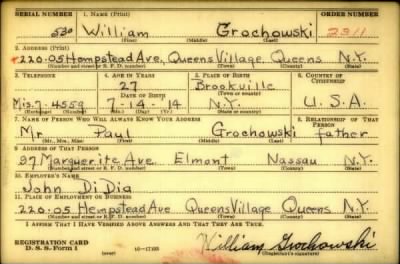 SERIAL NUMBER 1. NAME (Print) ORDER NUMBER
530 William Grochowski 2311
(First) (Middle) (Last)
2. ADDRESS (Print)
220-05 Hempstead Ave, Queens Village, Queens N.Y.
(Number and street or R. F. D. number) (Town) (County) (State)
3. TELEPHONE 4. AGE IN YEARS 5. PLACE OF BIRTH 6. COUNTRY OF CITIZENSHIP
27 Brookville
DATE OF BIRTH (Town or county)
Mis. 7-4559 7-14-'14 N.Y. U.S.A.
(Exchange) (Number) (Mo.) (Day) (Yr.) (State or country)
7. NAME OF PERSON WHO WILL ALWAYS KNOW YOUR ADDRESS 8. RELATIONSHIP OF THAT PERSON
Mr Paul Grochowski father
(Mr., Mrs., Miss) (First) (Middle) (Last)
9. ADDRESS OF THAT PERSON
97 Marguerite Ave. Elmont Nassau N.Y.
(Number and street or R. F. D. number) (Town) (County) (State)
10. EMPLOYER'S NAME
John DiDia
11. PLACE OF EMPLOYMENT OR BUSINESS
220-05 Hempstead Ave Queens Village Queens N.Y.
(Number and street or R. F. D. number) (Town) (County) (State)
I AFFIRM THAT I HAVE VERIFIED ABOVE ANSWERS AND THAT THEY ARE TRUE.
REGISTRATION CARD
D. S. S. Form 1 (over) 16-17105 William Grochowski
(Registrant's signature)